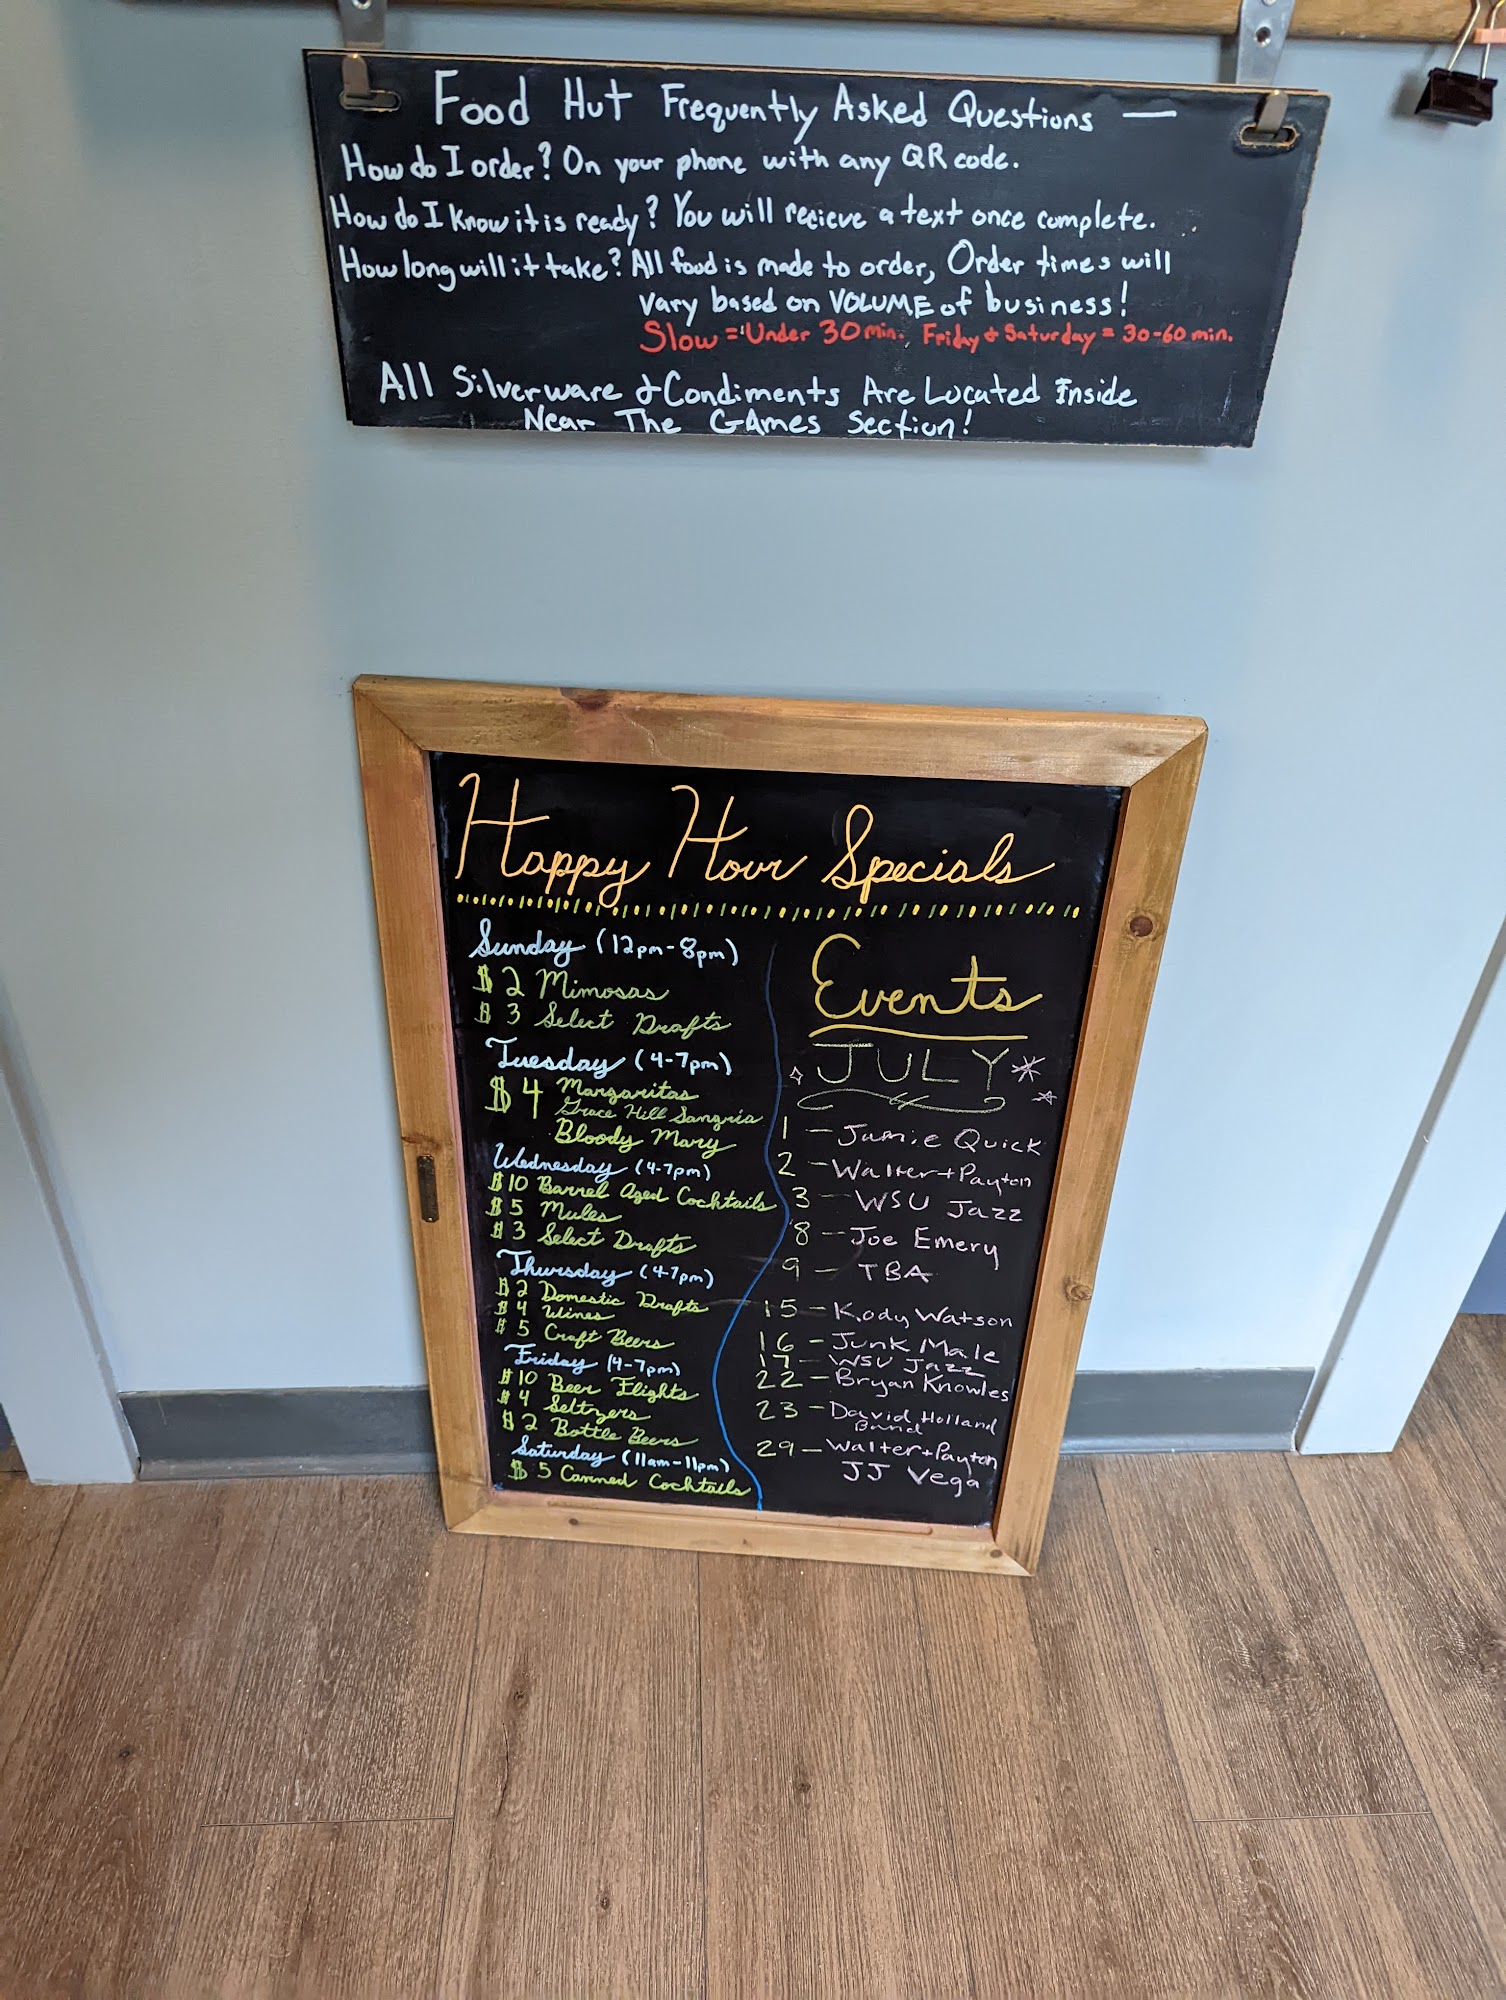 Food Hut Frequently Asked Questions —
How do I order? On your phone with any QR code.
How do I know it is ready? You will recieve a text once complete.
How long will it take? All food is made to order, Order times will
vary based on VOLUME of business!
Slow = Under 30 min. Friday & Saturday = 30-60 min.
All Silverware & Condiments Are Located Inside
Near The Games Section!
Happy Hour Specials
Sunday (12pm-8pm)
$2 Mimosas
$3 Select Drafts
Tuesday (4-7pm)
$4 Margaritas
Grace Hill Sangria
Bloody Mary
Wednesday (4-7pm)
$10 Barrel Aged Cocktails
$5 Mules
$3 Select Drafts
Thursday (4-7pm)
$2 Domestic Drafts
$4 Wines
$5 Craft Beers
Friday (4-7pm)
$10 Beer Flights
$4 Seltzers
$2 Bottle Beers
Saturday (11am-11pm)
$5 Canned Cocktails
Events
JULY
1 - Jamie Quick
2 - Walter + Payton
3 - WSU Jazz
8 - Joe Emery
9 - TBA
15 - Kody Watson
16 - Junk Male
17 - WSU Jazz
22 - Bryan Knowles
23 - David Holland
Band
29 - Walter + Payton
JJ Vega